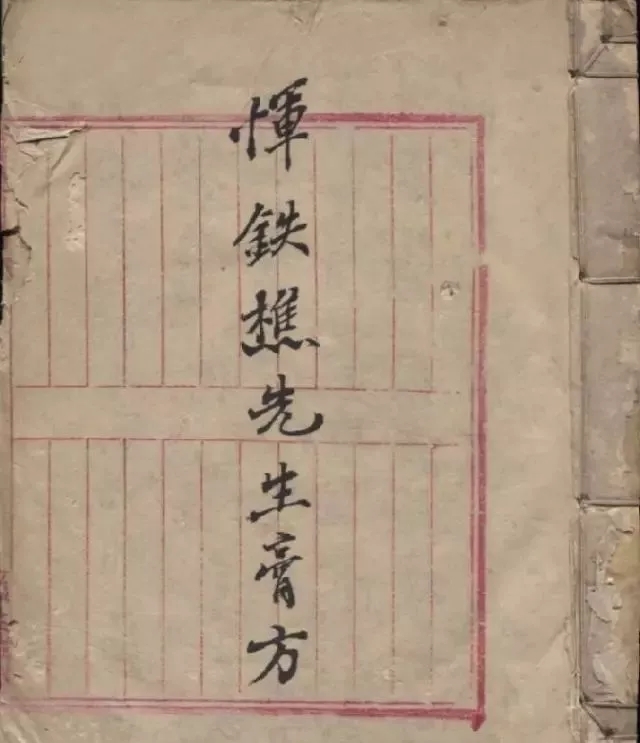 惲鉄樵先生膏方